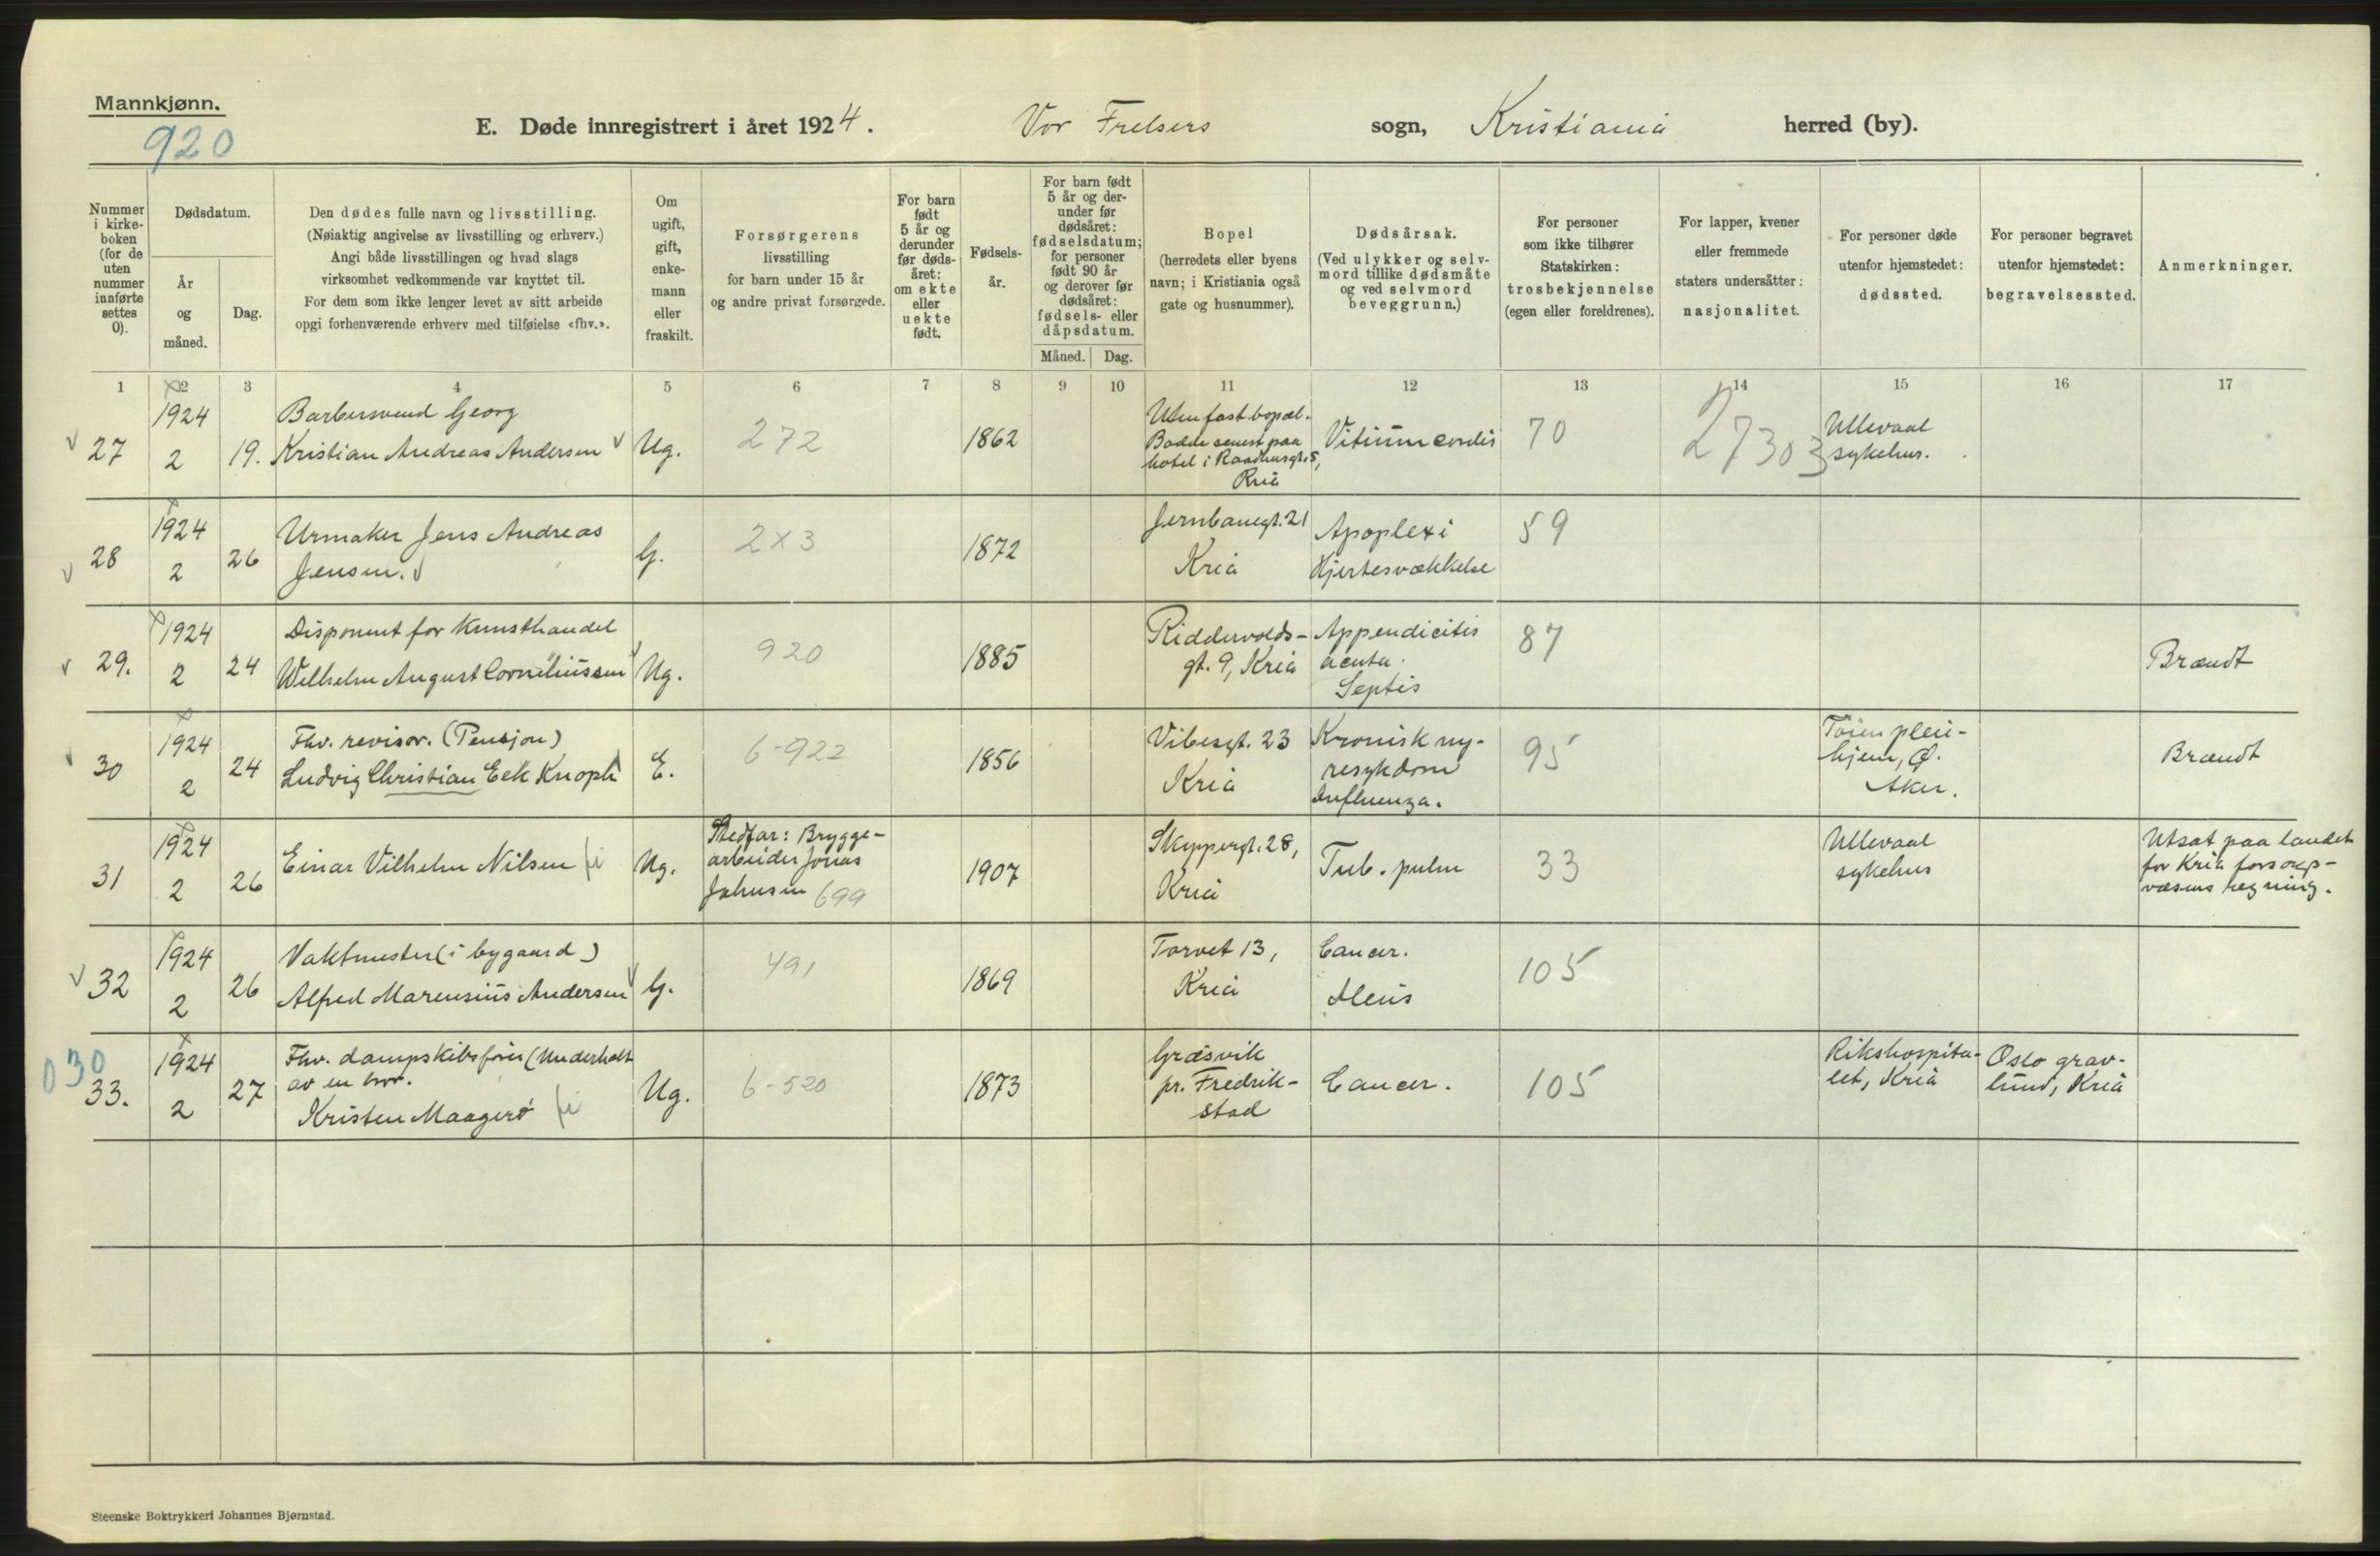 Mannkjønn.
920
E. Døde innregistrert i året 1924.
Vor Frelsers sogn, Kristiania herred (by).
Nummer i kirkeboken (for de uten nummer innførte settes 0).
Dødsdatum.
År og måned.
Dag.
Den dødes fulle navn og livsstilling.
(Nøiaktig angivelse av livsstilling og erhverv.)
Angi både livsstillingen og hvad slags
virksomhet vedkommende var knyttet til.
For dem som ikke lenger levet av sitt arbeide
opgi forhenværende erhverv med tilføielse «fhv.».
Om ugift, gift, enkemann eller fraskilt.
Forsørgerens
livsstilling
for barn under 15 år
og andre privat forsørgede.
For barn født 5 år og derunder før dødsåret: om ekte eller uekte født.
Fødselsår.
For barn født 5 år og derunder før dødsåret: fødselsdatum; for personer født 90 år og derover før dødsåret: fødsels- eller dåpsdatum.
Måned. Dag.
Bopel
(herredets eller byens
navn; i Kristiania også
gate og husnummer).
Dødsårsak.
(Ved ulykker og selv-
mord tillike dødsmåte
og ved selvmord
beveggrunn.)
For personer
som ikke tilhører
Statskirken:
trosbekjennelse
(egen eller foreldrenes).
For lapper, kvener
eller fremmede
staters undersåtter:
nasjonalitet.
For personer døde
utenfor hjemstedet:
dødssted.
For personer begravet
utenfor hjemstedet:
begravelsessted.
Anmerkninger.
1 2 3 4 5 6 7 8 9 10 11 12 13 14 15 16 17
27
1924
2
19.
Barbersvend Georg
Kristian Andreas Andersen
Ug.
272
1862
Uten fast bopæl.
Bodde senest paa
hotel i Raadhusgt. 5,
Kria
Vitium cordis
70
27303
Ullevaal
sykehus.
28
1924
2
26
Urmaker Jens Andreas
Jensen.
G.
2x3
1872
Jernbanegt. 21
Kria
Apoplexi
Hjertesvækkelse
59
29.
1924
2
24
Disponent for Kunsthandel
Wilhelm August Corneliussen
Ug.
920
1885
Riddervolds-
gt. 9, Kria
Appendicitis
acuta.
Septis
87
Brændt
30
1924
2
24
Fhv. revisor. (Pensjon)
Ludvig Christian Eek Knoph
E.
6-922
1856
Vibesgt. 23
Kria
Kronisk ny-
resykdom
Influenza.
95
Tøien pleie-
hjem, Ø.
Aker.
Brændt
31
1924
2
26
Einar Vilhelm Nilsen
Ug.
Stedfar: Brygge-
arbeider Jonas
Johnsen 699
1907
Skippergt. 28,
Kria
Tub. pulm
33
Ullevaal
sykehus
Utsat paa landet
for Kria forsorgs-
væsens regning.
32
1924
2
26
Vaktmester (i bygaard)
Alfred Marensius Andersen
G.
491
1869
Torvet 13,
Kria
Cancer.
105
030
33.
1924
2
27
Fhv. dampskibsfører (Underholt
av en bror.
Kristen Maagerø
Ug.
6-520
1873
Græsvik
pr. Fredrik-
stad
Cancer.
105
Rikshospita-
let, Kria
Oslo grav-
lund, Kria
Steenske Boktrykkeri Johannes Bjørnstad.